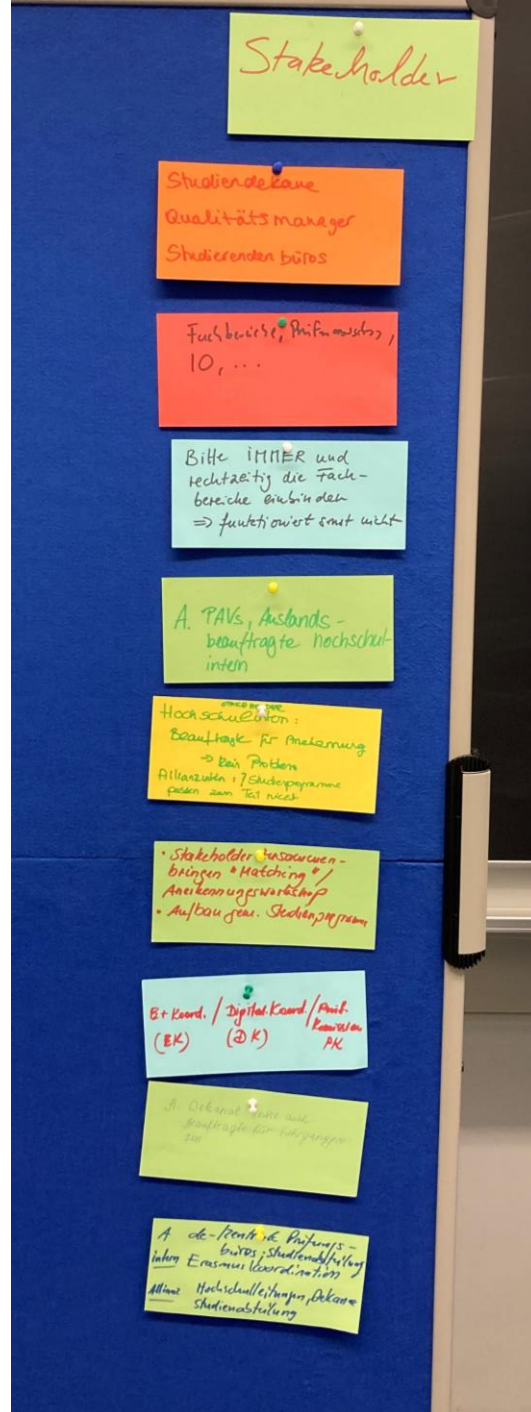 Stakeholder
Studiendekane
Qualitätsmanager
Studierendenbüros
Fachbereiche, Prüfungsausschss,
IO, ...
Bitte IMMER und
rechtzeitig die Fach-
bereiche einbinden
=> funktioniert sonst nicht
A. PAVs, Auslands-
beauftragte hochschul-
intern
Hochschulintern:
Beauftragte für Anerkennung
=> Kein Problem
Allianzunten: ? Studienprogramme
passen zum Teil nicht
• Stakeholder zusammen-
bringen "Matching" /
Anerkennungsworkshop
• Aufbau gem. Studienprogramme
E+ Koord. / Digital. Koord. / Prüf.
(EK) (DK) PK
A. Dekanat
Beauftragte für
A de-/zentrale Prüfungs-
büros, Studienabteilung
intern Erasmus Koordination
Allianz Hochschulleitungen, Dekane
Studienabteilung